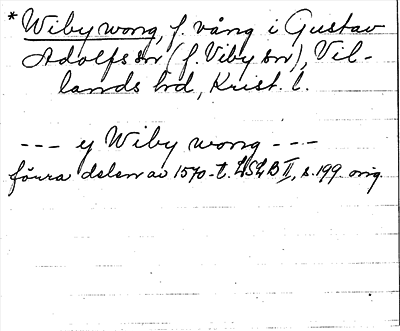 * Wiby wong, f. vång i Gustav
Adolfs sn (f. Viby sn), Vil-
lands hd, Krist. l.
--- y Wiby wong ---
förra delen av 1570-t. LSLB II, s. 199. orig.